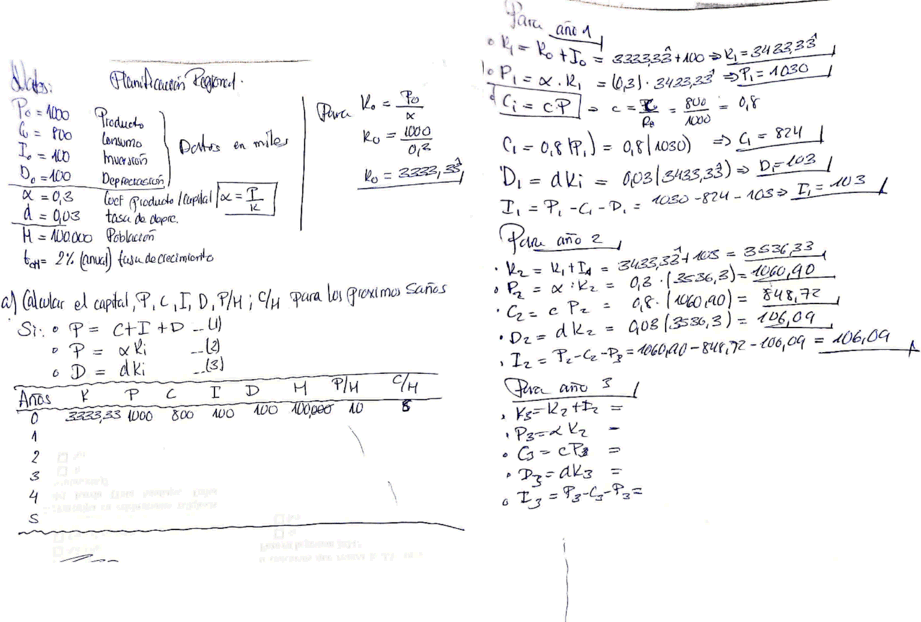 Datos:
Planificación Regional.
P₀ = 1000 Producto
C₀ = 800 Consumo
I₀ = 100 Inversión
D₀ = 100 Depreciación
Datos en miles
α = 0,3 Coef Producto/Capital α = P/K
d = 0,03 tasa de depre.
H = 100,000 Población
= 2% (anual) tasa de crecimiento
Para K₀ = P₀/α
K₀ = 1000/0,3
K₀ = 3333,33
a) Calcular el capital, P, C, I, D, P/H; C/H para los proximos 5 años
Si: • P = C+I+D —(1)
• P = αKi —(2)
• D = dKi —(3)
Años K P C I D H P/H C/H
0 3333,33 1000 800 100 100 100,000 10 8
1
2
3
4
5
Para año 1
• K₁ = K₀ + I₀ = 3333,33+100 ⇒ K₁ = 3433,33
P₁ = α . K₁ = (0,3) . 3433,33 ⇒ P₁ = 1030
Ci = cP ⇒ c = = 800/1000 = 0,8
C₁ = 0,8(P₁) = 0,8(1030) ⇒ C₁ = 824
D₁ = dKi = 0,03(3433,33) ⇒ D₁ = 103
I₁ = P₁ - C₁ - D₁ = 1030 - 824 - 103 ⇒ I₁ = 103
Para año 2
• K₂ = K₁+I₁ = 3433,33+103 = 3536,33
• P₂ = α . K₂ = 0,3 . (3536,3) = 1060,90
• C₂ = c P₂ = 0,8 . (1060,90) = 848,72
• D₂ = dK₂ = 0,03(3536,3) = 106,09
• I₂ = P₂-C₂-P₃ = 1060,90-848,72-106,09 = 106,09
Para año 3
• K₃ = K₂+I₂ =
• P₃ = αK₂ =
• C₃ = cP₃ =
• D₃ = dK₃ =
• I₃ = P₃-C₃-P₃ =